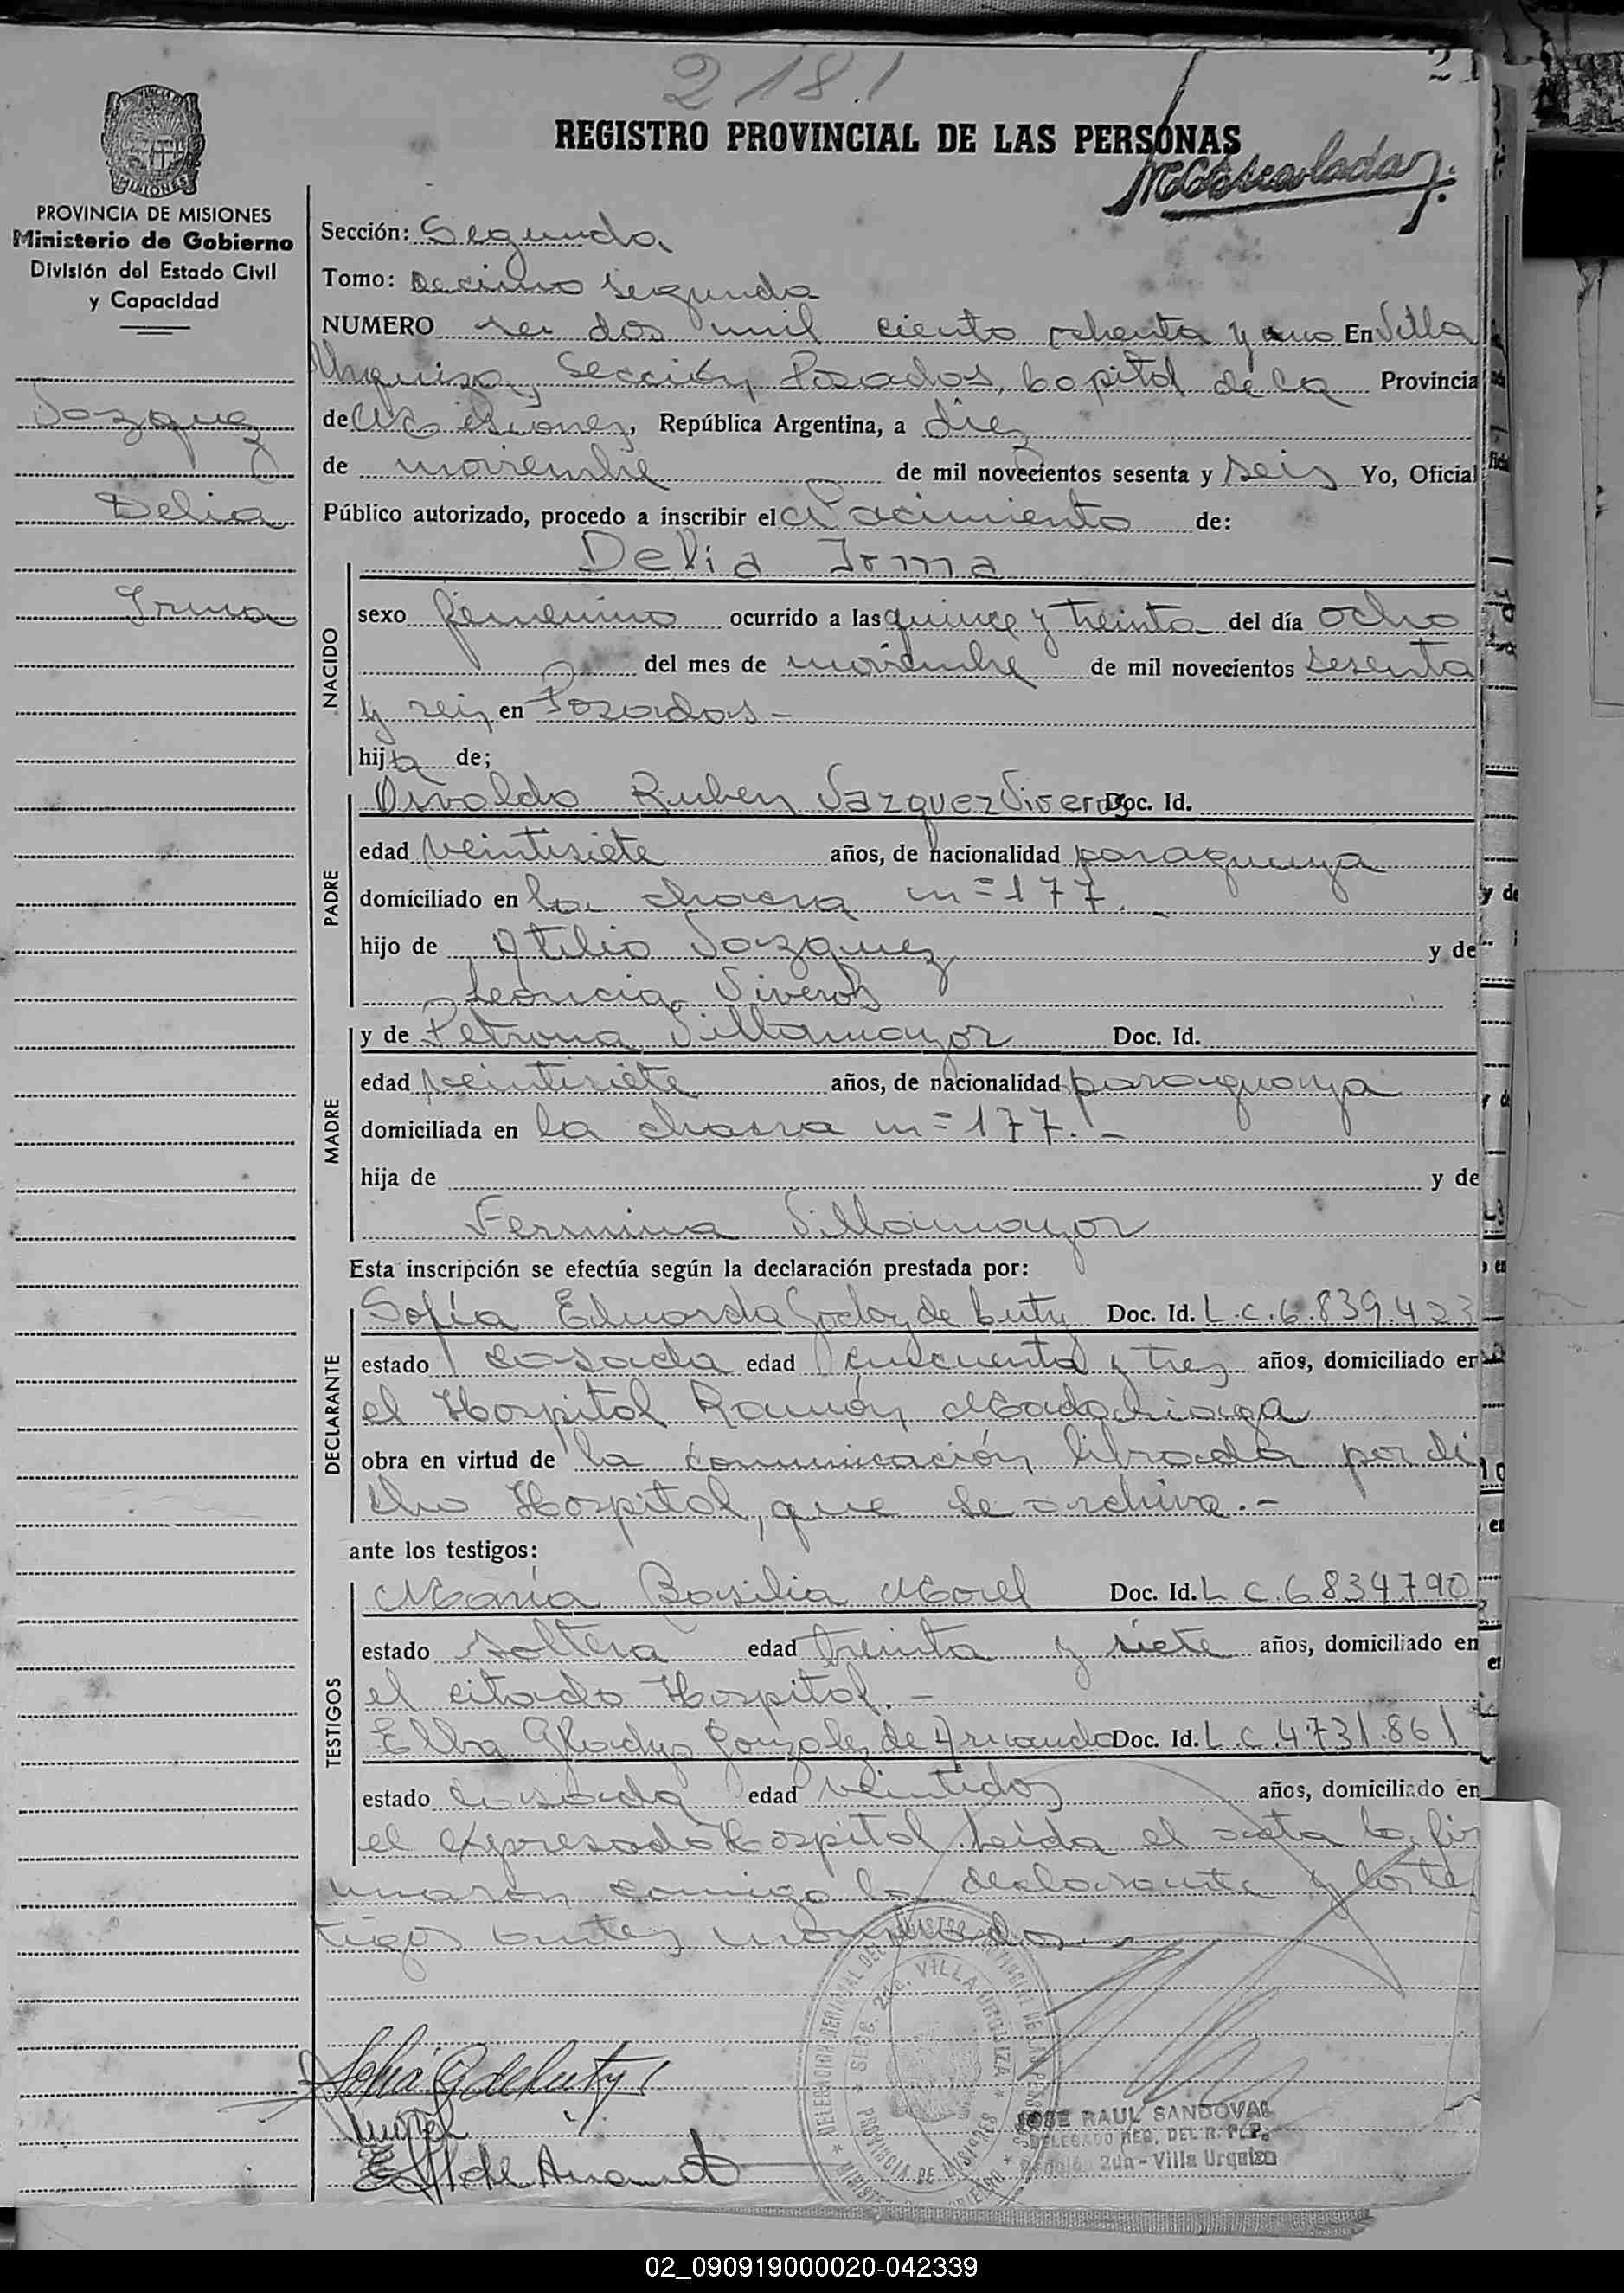 2181
21
REGISTRO PROVINCIAL DE LAS PERSONAS
PROVINCIA DE MISIONES
Ministerio de Gobierno
División del Estado Civil
y Capacidad
Vazquez
Delia
Irma
Sección: Segunda
Tomo: Decimo segunda
NUMERO dos mil ciento ochenta y uno En Villa
Urquiza, Sección Posadas, Capital de la Provincia
de Misiones, República Argentina, a diez
de noviembre de mil novecientos sesenta y seis Yo, Oficial
Público autorizado, procedo a inscribir el Nacimiento de:
Delia Irma
NACIDO
sexo femenino ocurrido a las quince y treinta del día ocho
del mes de noviembre de mil novecientos sesenta
y seis en Posadas -
hija de;
PADRE
Osvaldo Ruben Vazquez Viveros Doc. Id.
edad veintisiete años, de nacionalidad paraguaya
domiciliado en la chacra nº 177. -
hijo de Atilio Vazquez y de
Leoncia Viveros
MADRE
y de Petrona Villamayor Doc. Id.
edad veintisiete años, de nacionalidad paraguaya
domiciliada en la chacra nº 177. -
hija de y de
Fermina Villamayor
Esta inscripción se efectúa según la declaración prestada por:
DECLARANTE
Sofía Eduarda Godoy de Luty Doc. Id. L.C. 6.839.423
estado casada edad cincuenta y tres años, domiciliado en
el Hospital Ramón Madariaga
obra en virtud de la comunicación librada por di
cho Hospital, que se archiva. -
ante los testigos:
TESTIGOS
María Basilia Morel Doc. Id. L C. 6834790
estado soltera edad treinta y siete años, domiciliado en
el citado Hospital. -
Elba Gladys Gonzalez de Doc. Id. L.C. 4731.861
estado casada edad veintidos años, domiciliado en
el expresado Hospital. Leida el acta la fir
maron conmigo la declarante y los te
tigos antes nombrados
DELEGACION REGISTRO PROVINCIAL DE LAS PERSONAS
SECC. 2da. VILLA URQUIZA
PROVINCIA DE MISIONES
JOSE RAUL SANDOVAL
DELEGADO REG. DEL R. P. P.
Sección 2da - Villa Urquiza
02_090919000020-042339